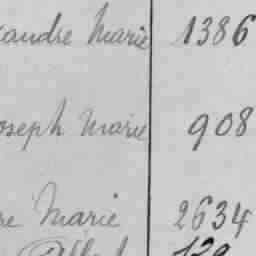 xandre Marie 1386
oseph Marie 908
re Marie 2634